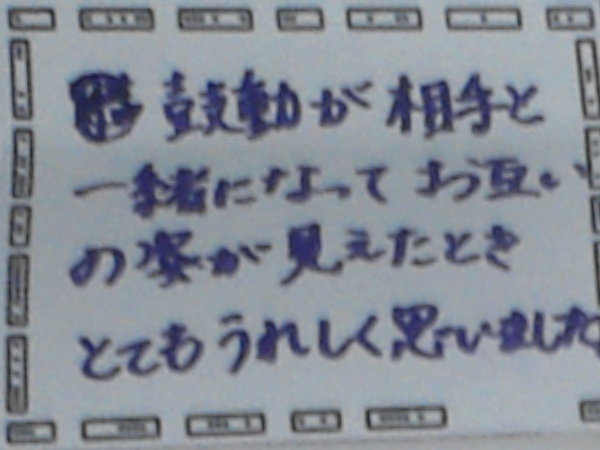 鼓動が相手と
一緒になってお互い
の姿が見えたとき
とてもうれしく思いました